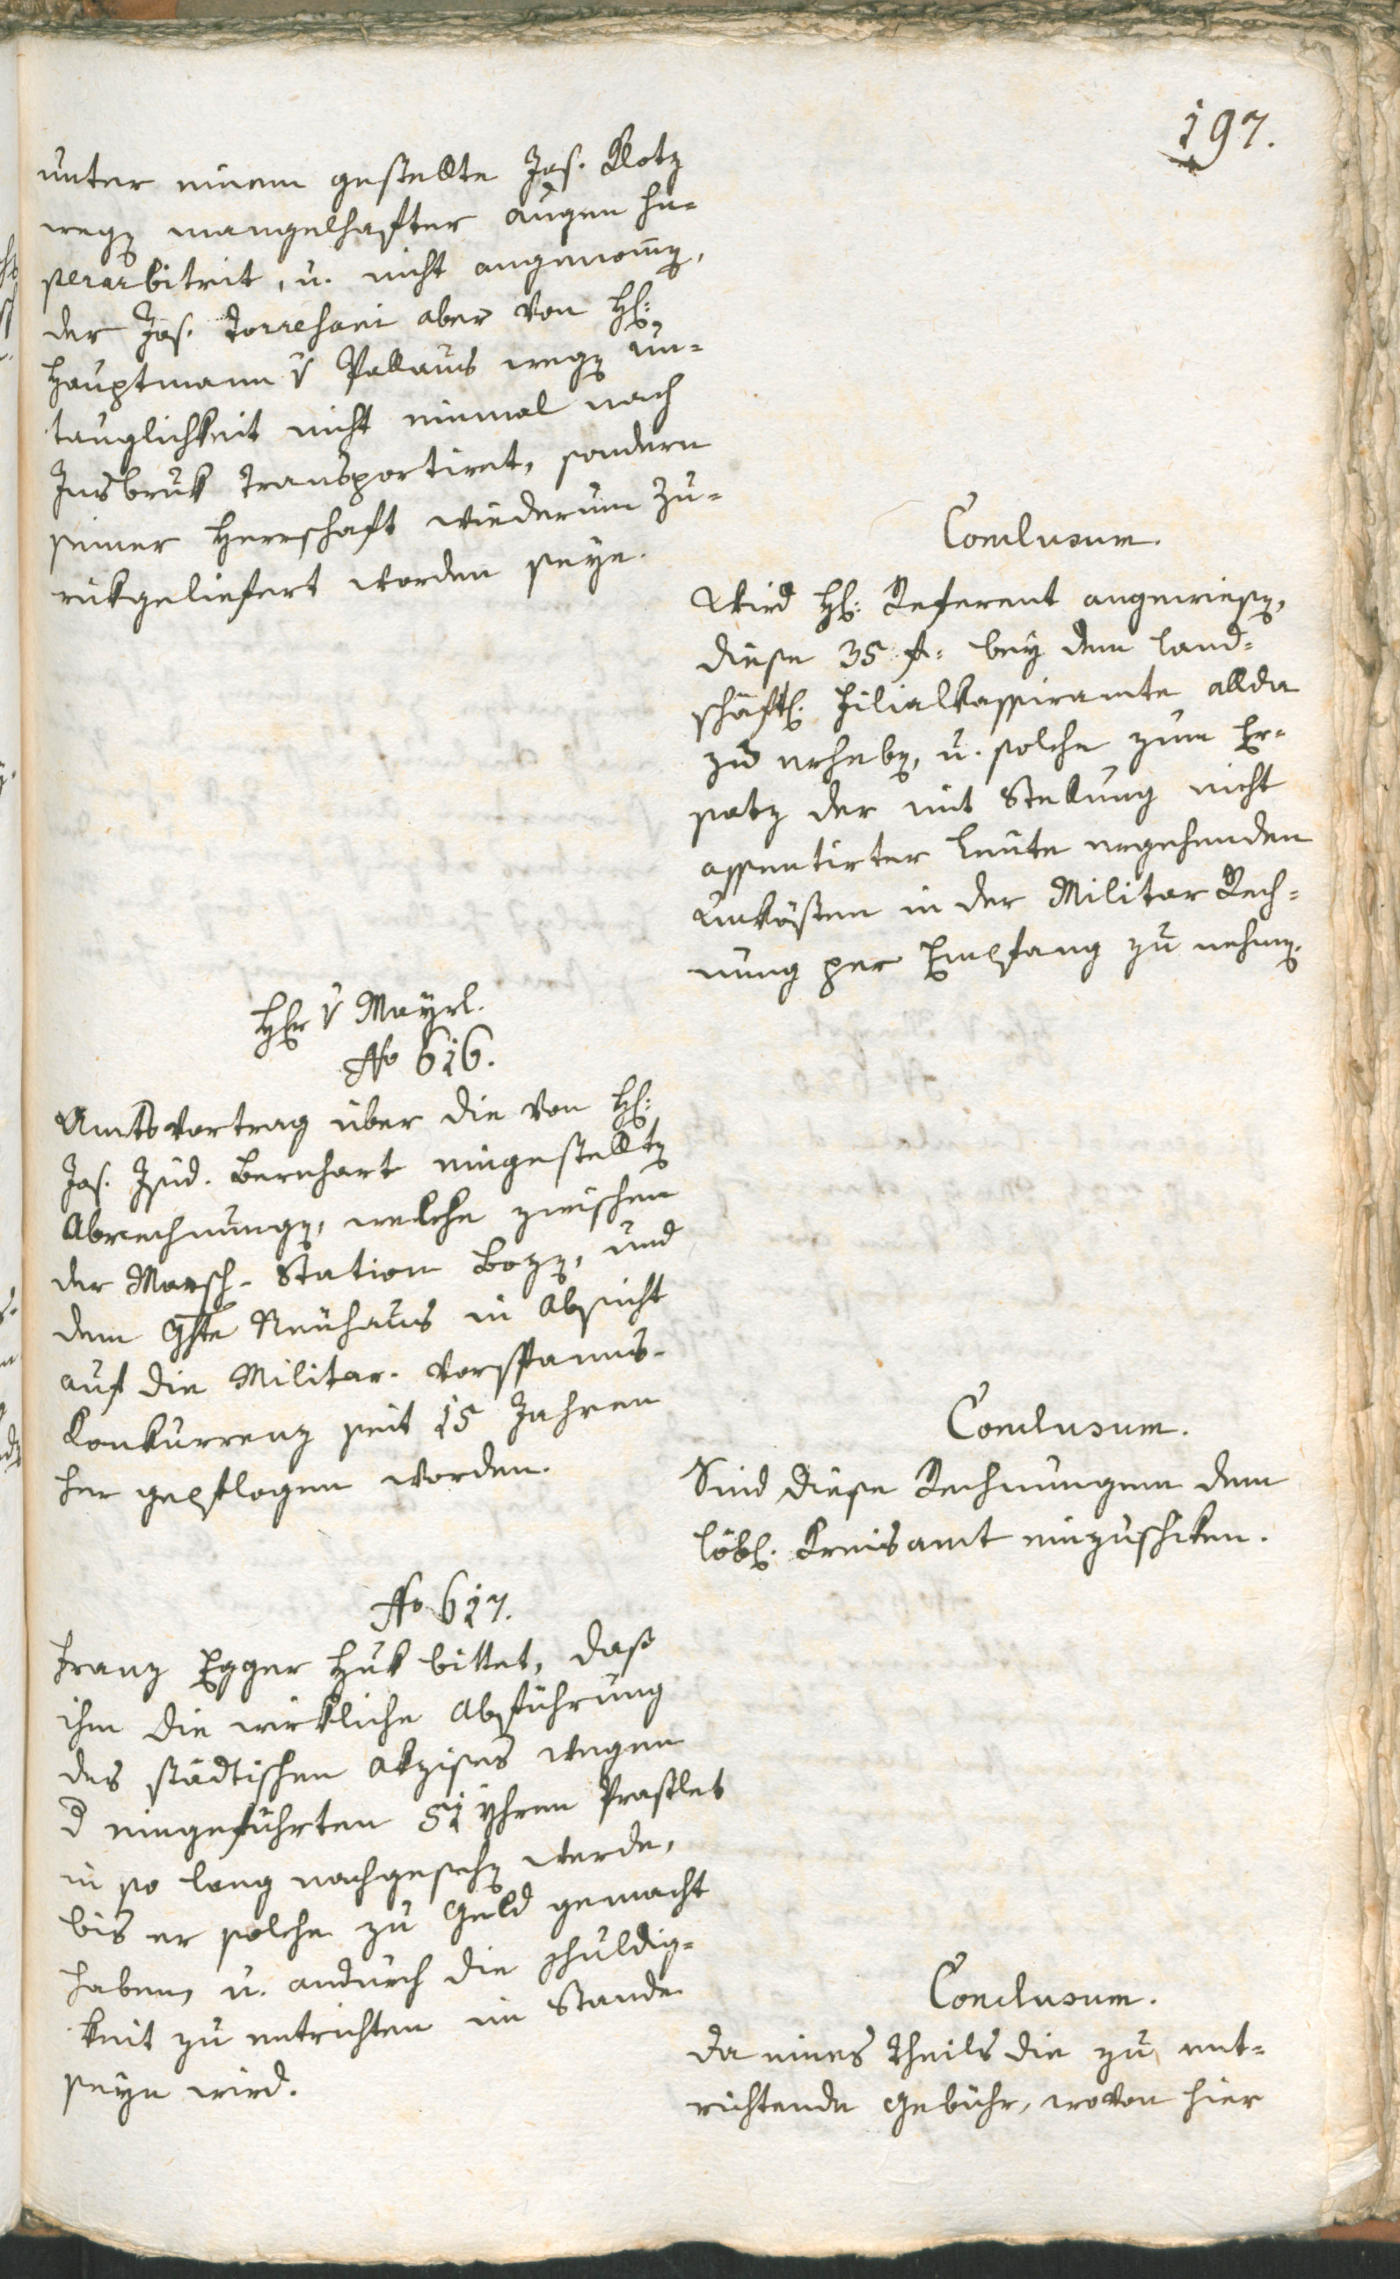 197.
unter einem gestellte Jos. Klotz
wegen mangelhafter augen su-
perarbitrirt, u. nicht angenomen,
der Jos. Torresani aber von H:
Hauptmann v Pallaus wegen un-
tauglichkeit nicht einmal nach
Insbruk transportiret, sondern
seiner Herrschaft wiederum zu-
rükgeliefert worden seye.
Conclusum.
Wird H: Referent angewiesen,
diese 35 f: bey dem land-
schäftl. Filialkassiramte allda
zu erheben, u. solche zum Er-
satz der mit Stellung nicht
assentirter Leute ergehenden
Unkösten in der Militar Rech-
nung per Empfang zu nehmen.
Hr v Mayrl.
No 616.
Amtsvortrag über die von H:
Jos. Isid. Bernhart eingestellten
Abrechnungen, welche zwischen
der Marsch-Station Bozen, und
dem Ghte Neuhaus in Absicht
auf die Militar-Vorspanns-
Konkurrenz seit 15 Jahren
her gepflogen worden.
Conclusum.
Sind diese Rechnungen dem
löbl. Kreisamt einzuschiken.
No 617.
Franz Egger Huk bittet, daß
ihm die wirkliche Abführung
des städtischen Akzises wegen
d eingeführten 51 Yhren Praßlet
in so lang nachgesehen werde,
bis er solche zu Geld gemacht
haben, u. andurch die schuldig-
keit zu entrichten im Stande
seyn wird.
Conclusum.
Da eines Theils die zu ent-
richtende Gebühr, wovon hier